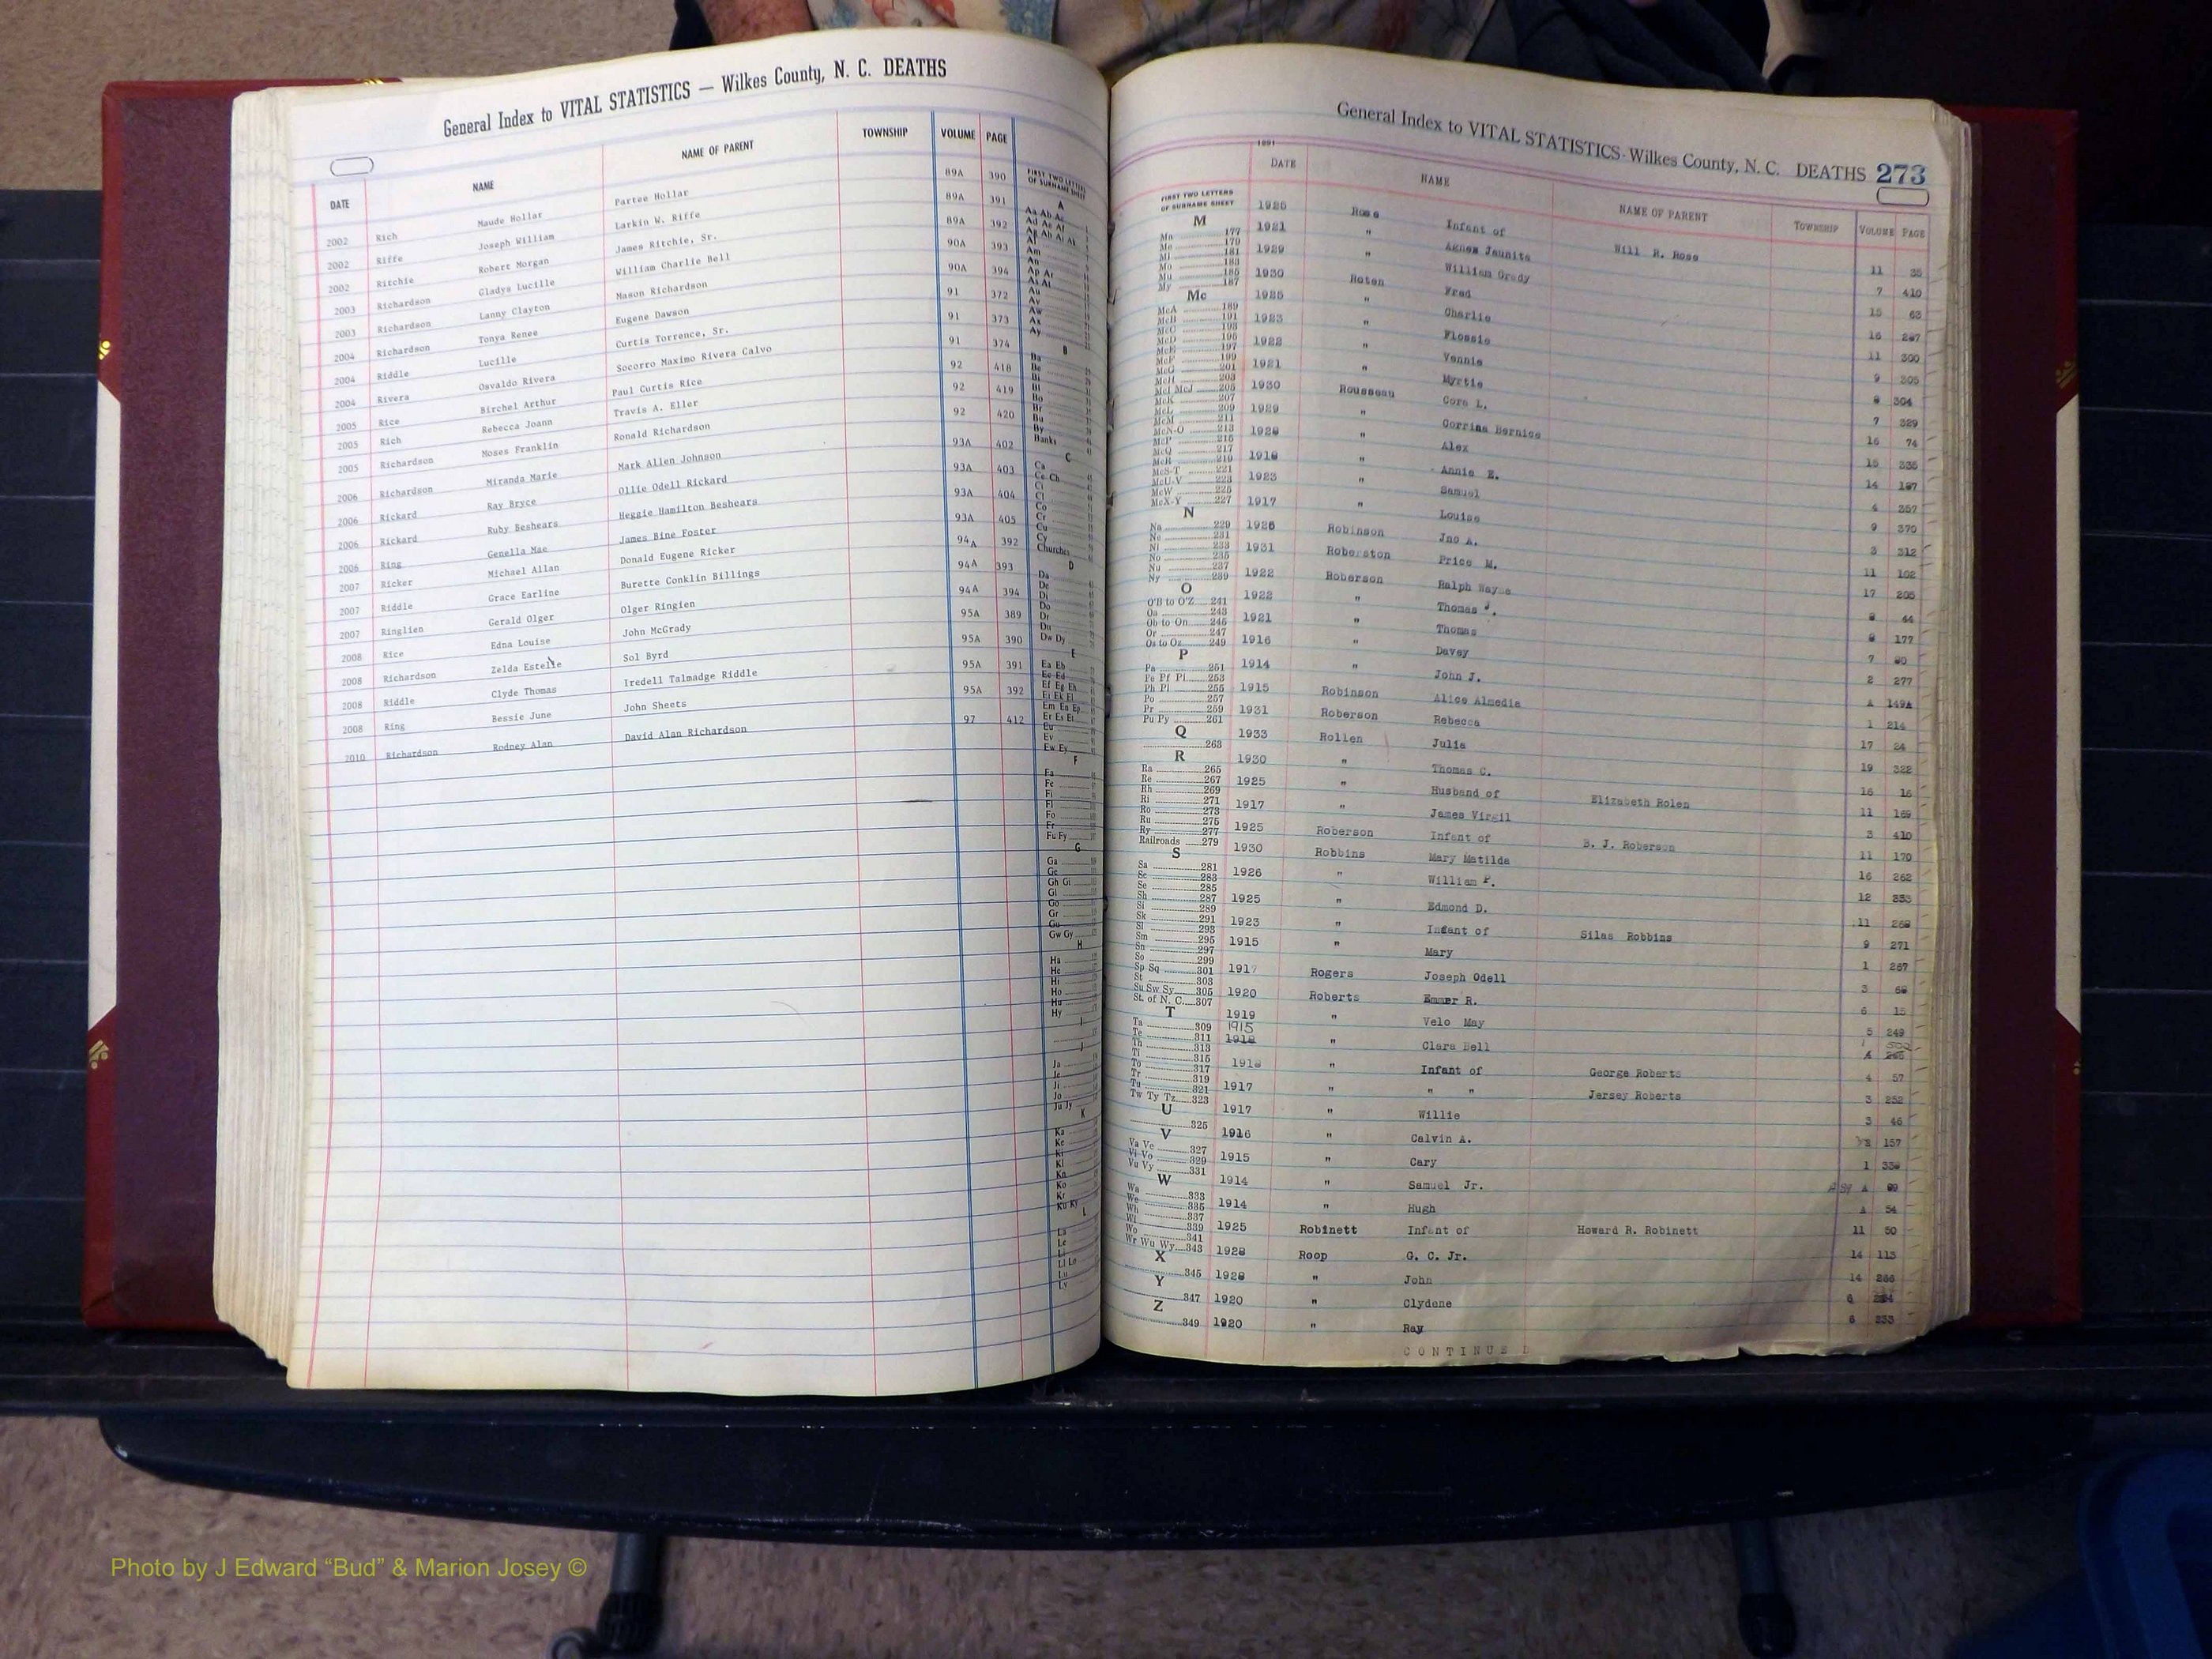 General Index to VITAL STATISTICS — Wilkes County, N. C. DEATHS
DATE NAME NAME OF PARENT TOWNSHIP VOLUME PAGE
2002 Rich Maude Hollar Partee Hollar 89A 390
2002 Riffe Joseph William Larkin W. Riffe 89A 391
2002 Ritchie Robert Morgan James Ritchie, Sr. 89A 392
2003 Richardson Gladys Lucille William Charlie Bell 90A 393
2003 Richardson Lanny Clayton Mason Richardson 90A 394
2004 Richardson Tonya Renee Eugene Dawson 91 372
2004 Riddle Lucille Curtis Torrence, Sr. 91 373
2004 Rivera Osvaldo Rivera Socorro Maximo Rivera Calvo 91 374
2005 Rice Birchel Arthur Paul Curtis Rice 92 418
2005 Rich Rebecca Joann Travis A. Eller 92 419
2005 Richardson Moses Franklin Ronald Richardson 92 420
2006 Richardson Miranda Marie Mark Allen Johnson 93A 402
2006 Rickard Ray Bryce Ollie Odell Rickard 93A 403
2006 Rickard Ruby Beshears Heggie Hamilton Beshears 93A 404
2006 Ring Genella Mae James Bine Foster 93A 405
2007 Ricker Michael Allan Donald Eugene Ricker 94A 392
2007 Riddle Grace Earline Burette Conklin Billings 94A 393
2007 Ringlien Gerald Olger Olger Ringien 94A 394
2008 Rice Edna Louise John McGrady 95A 389
2008 Richardson Zelda Estelle Sol Byrd 95A 390
2008 Riddle Clyde Thomas Iredell Talmadge Riddle 95A 391
2008 Ring Bessie June John Sheets 95A 392
2010 Richardson Rodney Alan David Alan Richardson 97 412
FIRST TWO LETTERS
OF SURNAME SHEET
A
Aa Ab Ac
Ad Ae Af
Al
Am
An
Ap Ar
Au
Av
Aw
Ax
Ay
B
Ba
Be
Bi
Bl
Bo
Br
Bu
By
Banks
C
Ca
Ce Ch
Ci
Cl
Co
Cr
Cu
Cy
Churches
D
Da
De
Di
Do
Dr
Du
Dw Dy
E
Ea Eb
Ec Ed
Ef Eg Eh
Ei Ek El
Em En Ep
Er Es Et
Eu
Ev
Ew Ey
F
Fa
Fe
Fi
Fl
Fo
Fr
Fu Fy
G
Ga
Ge
Gh Gi
Gl
Go
Gr
Gu
Gw Gy
H
Ha
He
Hi
Ho
Hu
Hy
I
J
Ja
Je
Ji
Jo
Ju Jy
K
Ka
Ke
Ki
Kl
Kn
Ko
Kr
Ku Ky
L
La
Le
Li
Ll Lo
Lu
Ly
General Index to VITAL STATISTICS- Wilkes County, N. C. DEATHS 273
DATE NAME NAME OF PARENT TOWNSHIP VOLUME PAGE
FIRST TWO LETTERS
OF SURNAME SHEET
M
Ma 177
Me 179
Mi 181
Mo 183
Mu 185
My 187
Mc
McA 189
McB 191
McC 193
McD 195
McE 197
McF 199
McG 201
McH 203
McI McJ 205
McK 207
McL 209
McM 211
McN-O 213
McP 215
McQ 217
McR 219
McS-T 221
McU-V 223
McW 225
McX-Y 227
N
Na 229
Ne 231
Ni 233
No 235
Nu 237
Ny 239
O
O'B to O'Z 241
Oa 243
Ob to On 245
Or 247
Os to Oz 249
P
Pa 251
Pe Pf Pl 253
Ph Pi 255
Po 257
Pr 259
Pu Py 261
Q
263
R
Ra 265
Re 267
Rh 269
Ri 271
Ro 273
Ru 275
Ry 277
Railroads 279
S
Sa 281
Sc 283
Se 285
Sh 287
Si 289
Sk 291
Sl 293
Sm 295
Sn 297
So 299
Sp Sq 301
St 303
Su Sw Sy 305
St. of N. C. 307
T
Ta 309
Te 311
Th 313
Ti 315
To 317
Tr 319
Tu 321
Tw Ty Tz 323
U
325
V
Va Ve 327
Vi Vo 329
Vu Vy 331
W
Wa 333
We 335
Wh 337
Wi 339
Wo 341
Wr Wu Wy 343
X
345
Y
347
Z
349
1925 Rose Infant of Will R. Rose 11 35
1921 " Agnes Jaunita 7 410
1929 " William Grady 15 63
1930 Roten Fred 16 287
1925 " Charlie 11 300
1923 " Flossie 9 305
1922 " Vennie 8 304
1921 " Myrtie 7 329
1930 Rousseau Cora L. 16 74
1929 " Corrina Bernice 15 335
1928 " Alex 14 187
1918 " Annie E. 4 357
1923 " Samuel 9 370
1917 " Louise 3 312
1925 Robinson Jno A. 11 102
1931 Roberston Price M. 17 205
1922 Roberson Ralph Wayne 8 44
1922 " Thomas J. 8 177
1921 " Thomas 7 80
1916 " Davey 2 277
1914 " John J. A 149A
1915 Robinson Alice Almedia 1 214
1931 Roberson Rebecca 17 24
1933 Rollen Julia 19 322
1930 " Thomas C. 16 16
1925 " Husband of Elizabeth Rolen 11 169
1917 " James Virgil 3 410
1925 Roberson Infant of B. J. Roberson 11 170
1930 Robbins Mary Matilda 16 262
1926 " William P. 12 353
1925 " Edmond D. 11 268
1923 " Infant of Silas Robbins 9 271
1915 " Mary 1 267
1917 Rogers Joseph Odell 3 68
1920 Roberts Emmer R. 6 15
1919 " Velo May 5 249
1915 1918 " Clara Bell 1
1918 " Infant of George Roberts 4 57
1917 " " " Jersey Roberts 3 252
1917 " Willie 3 46
1916 " Calvin A. 2 157
1915 " Cary 1
1914 " Samuel Jr. A
1914 " Hugh A 54
1925 Robinett Infant of Howard R. Robinett 11 50
1928 Roop G. C. Jr. 14 113
1928 " John 14 266
1920 " Clydene 6
1920 " Ray 6 233
CONTINUED
Photo by J Edward “Bud” & Marion Josey ©